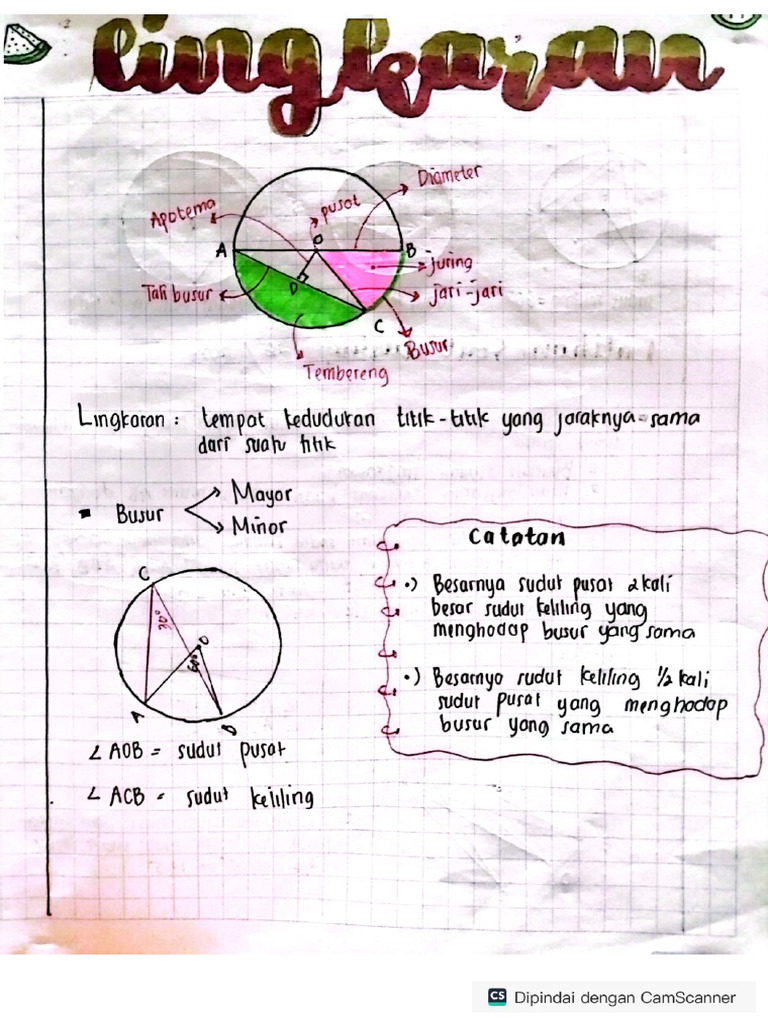 Lingkaran
Apotema
pusat
Diameter
A
O
B
juring
D
Tali busur
jari-jari
C
Busur
Tembereng
Lingkaran : tempat kedudukan titik-titik yang jaraknya sama
dari suatu titik
Busur
Mayor
Minor
C
30°
O
60°
A
B
∠ AOB = sudut pusat
∠ ACB = sudut keliling
Catatan
•) Besarnya sudut pusat 2 kali
besar sudut keliling yang
menghadap busur yang sama
•) Besarnya sudut keliling 1/2 kali
sudut pusat yang menghadap
busur yang sama
CS Dipindai dengan CamScanner